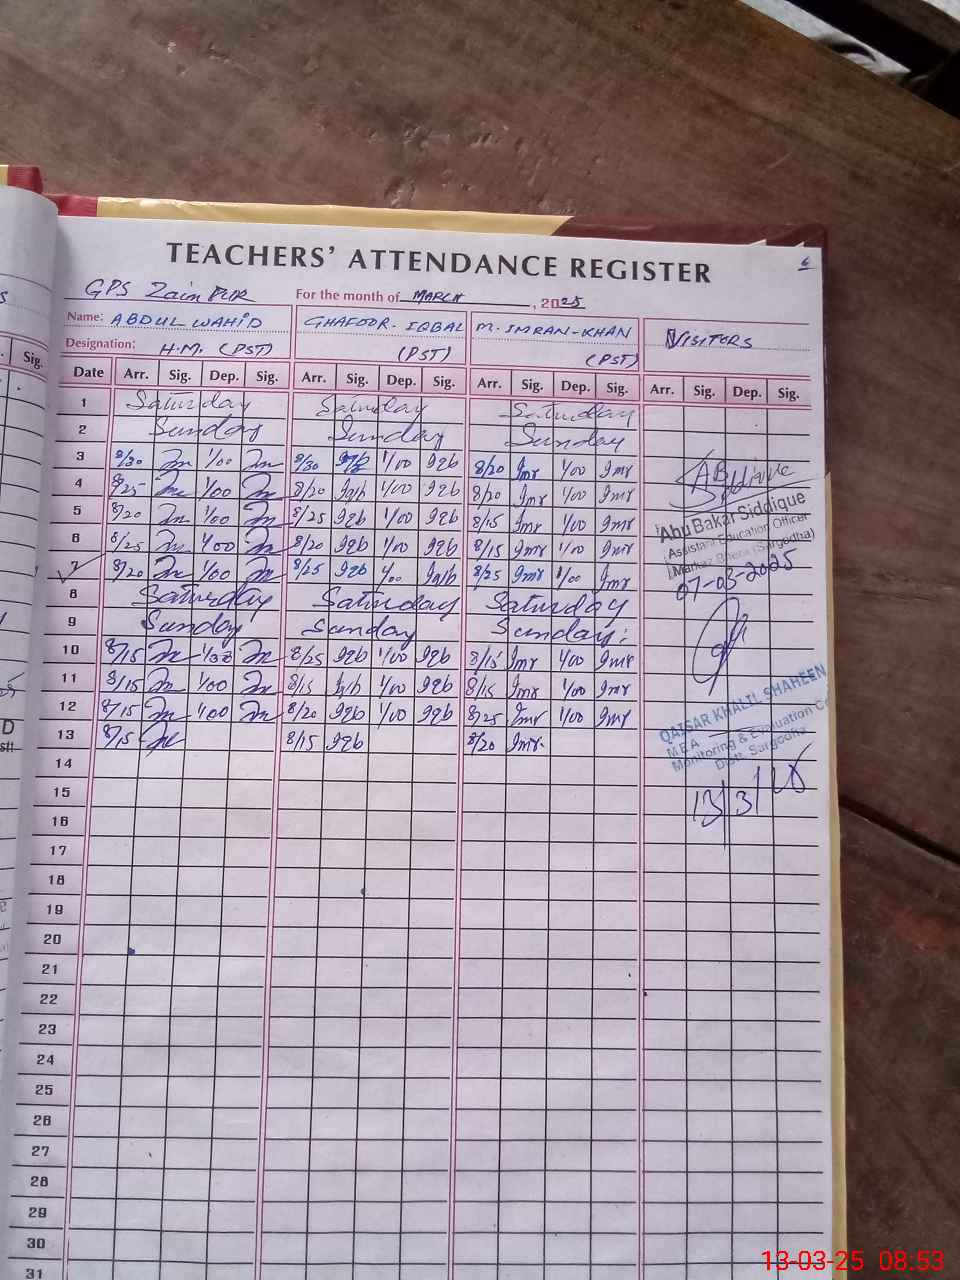 TEACHERS' ATTENDANCE REGISTER
GPS Zain PUR For the month of MARCH, 2025
Name: ABDUL WAHID GHAFOOR. IQBAL M. IMRAN-KHAN VISITORS
Designation: H.M. (PST) (PST) (PST)
Sig. Date Arr. Sig. Dep. Sig. Arr. Sig. Dep. Sig. Arr. Sig. Dep. Sig. Arr. Sig. Dep. Sig.
1 Saturday Saturday Saturday
2 Sunday Sunday Sunday
3 8/30 1/00 8/30 Iqb 1/00 Iqb 8/20 Imr 1/00 Imr
4 8/25 1/00 8/20 Iqb 1/00 Iqb 8/20 Imr 1/00 Imr
5 8/20 1/00 8/25 Iqb 1/00 Iqb 8/15 Imr 1/00 Imr
Abu Bakar Siddique
6 8/25 1/00 8/20 Iqb 1/00 Iqb 8/15 Imr 1/00 Imr
Assistant Education Officer
Markaz Bhera (Sargodha)
7 8/20 1/00 8/25 Iqb 1/00 Iqb 8/25 Imr 1/00 Imr
07-03-2025
8 Saturday Saturday Saturday
9 Sunday Sunday Sunday
10 8/15 8/25 Iqb 1/00 Iqb 8/15 Imr 1/00 Imr
11 8/15 1/00 8/15 Iqb 1/00 Iqb 8/15 Imr 1/00 Imr
12 8/15 1/00 8/20 Iqb 1/00 Iqb 8/25 Imr 1/00 Imr
QAISAR KHALIL SHAHEEN
13 8/15 8/15 Iqb 8/20 Imr
M.E.A
Monitoring & Evaluation
Distt. Sargodha
14
15
13/3/25
16
17
18
19
20
21
22
23
24
25
26
27
28
29
30
31
13-03-25 08:53